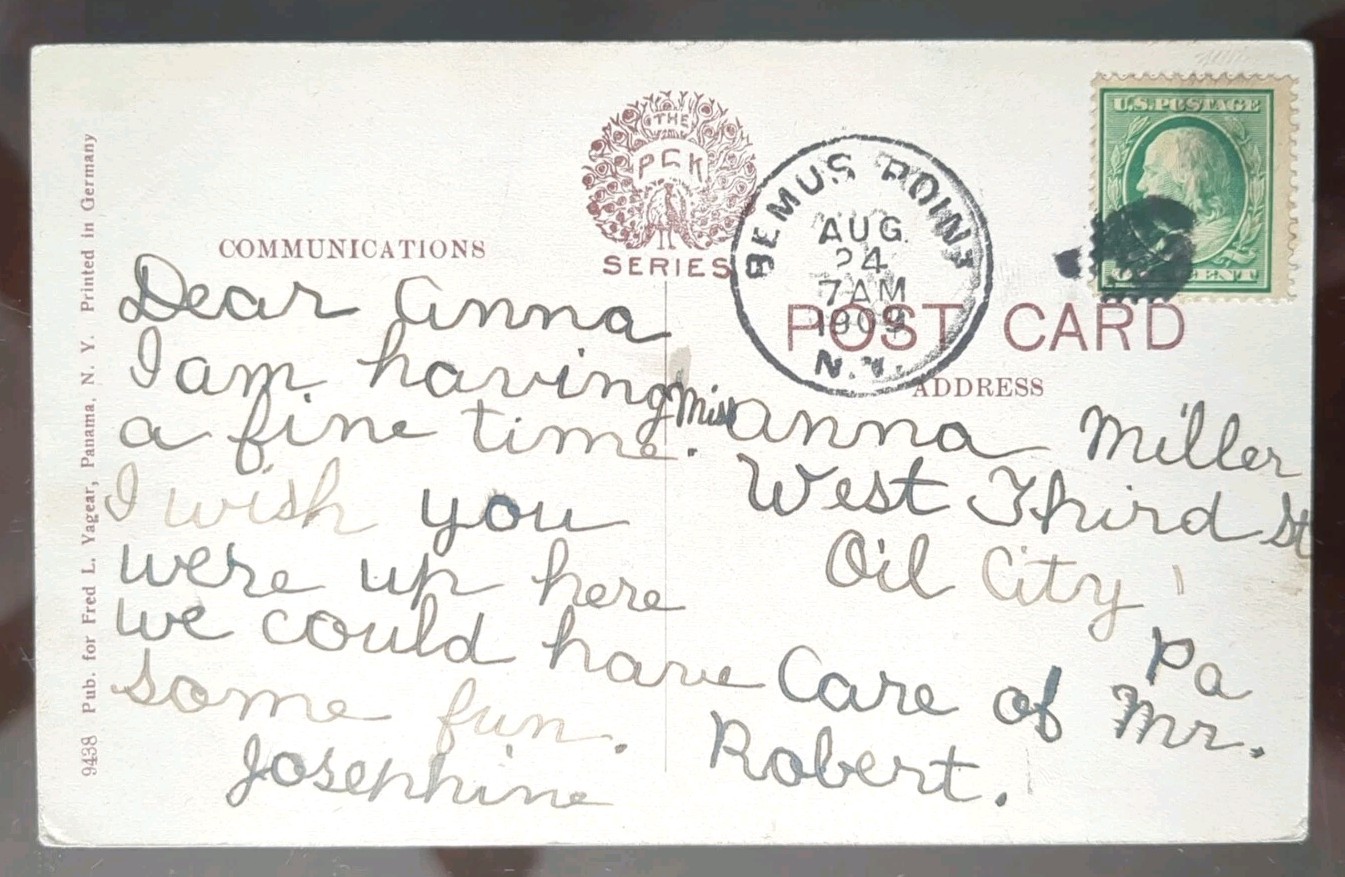 9438 Pub. for Fred L. Yagear, Panama, N. Y. Printed in Germany
COMMUNICATIONS
THE
PCK
SERIES
BEMUS POINT
AUG
24
7 AM
1909
N.Y.
U.S. POSTAGE
CENT
POST CARD
ADDRESS
Dear Anna
I am having
a fine time.
I wish you
were up here
we could have
some fun.
Josephine
Miss Anna Miller
West Third St
Oil City,
Pa
Care of Mr.
Robert.